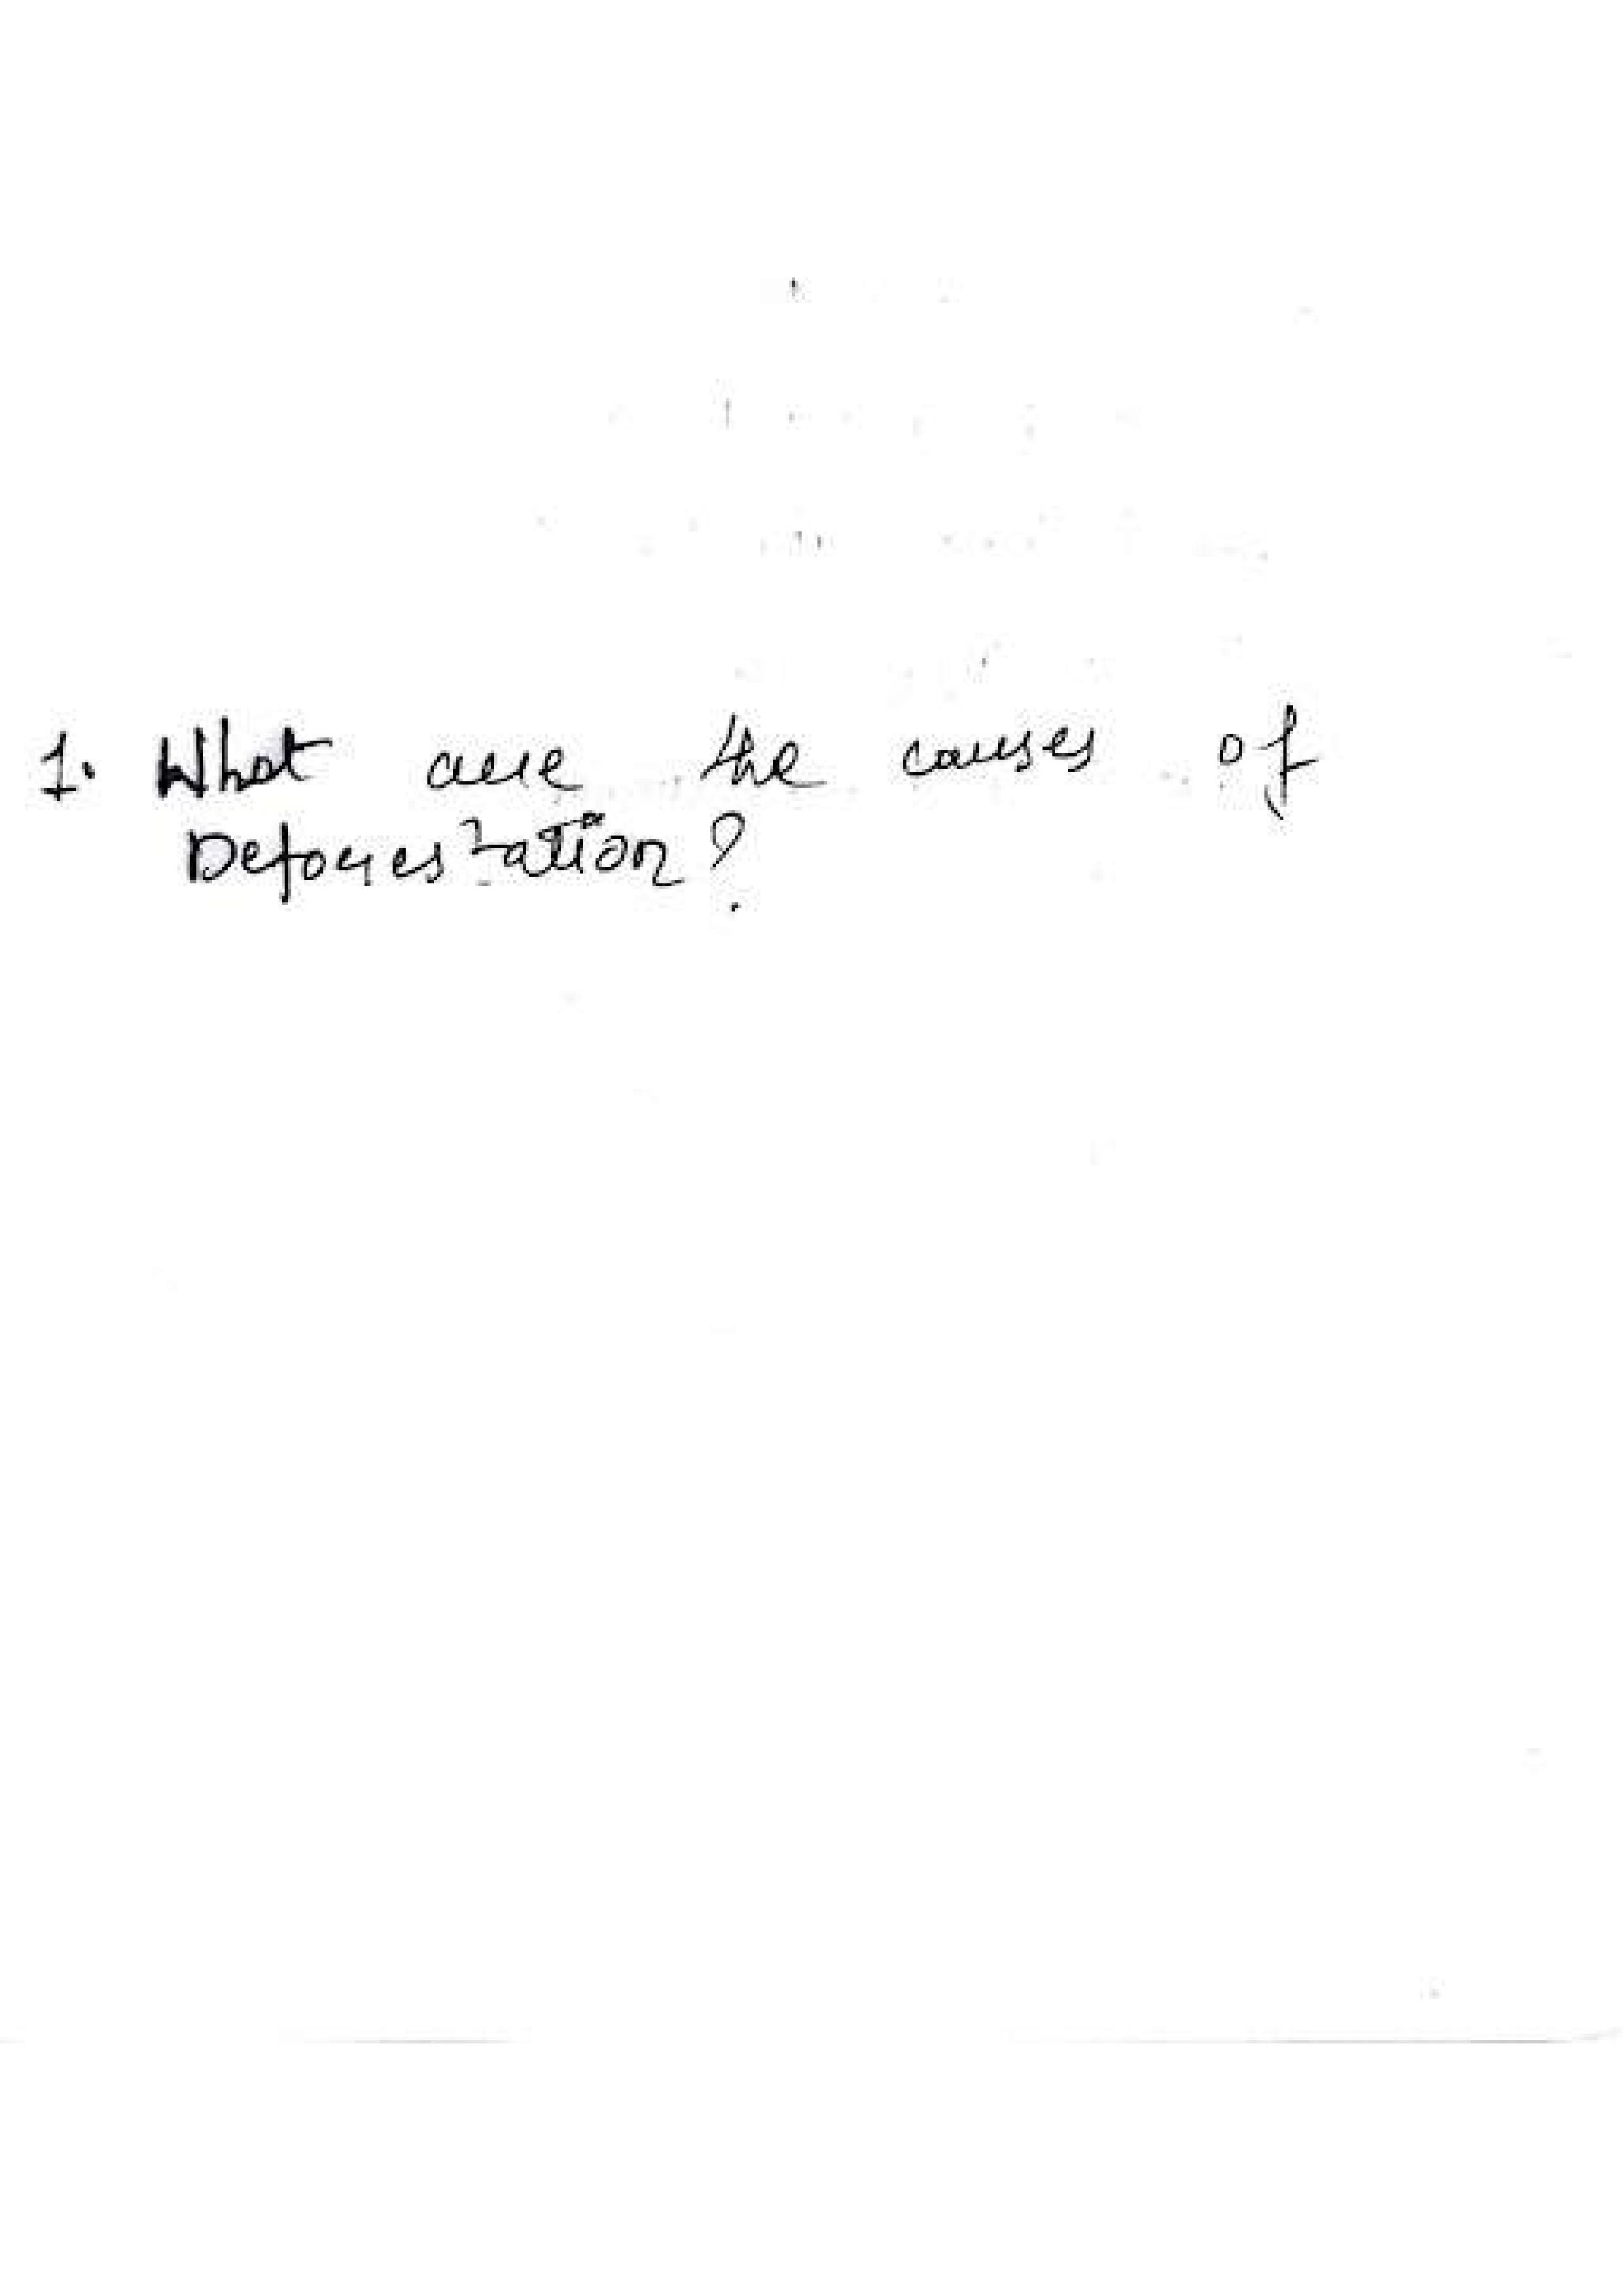 1. What are the causes of
Deforestation?